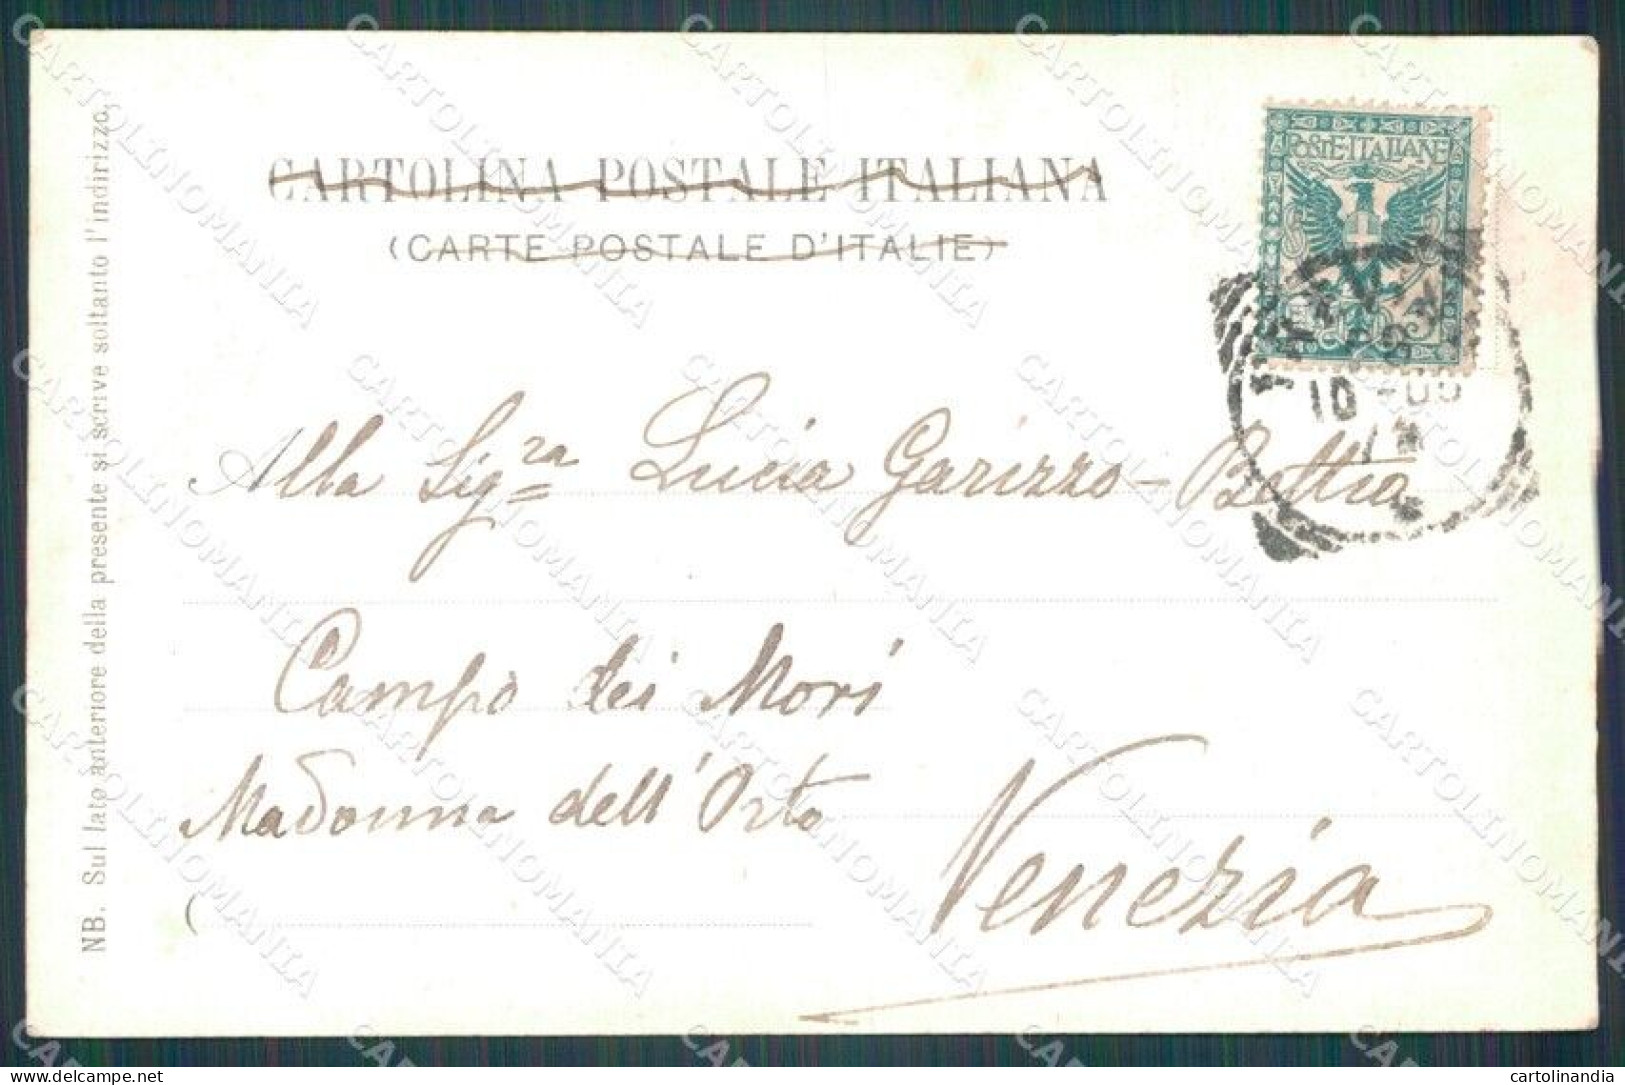 CARTOLINA POSTALE ITALIANA
(CARTE POSTALE D'ITALIE)
POSTE ITALIANE
1
10 - 05
Alla Sig.ra Lucia Garizzo - Bettia
Campo dei Mori
Madonna dell'Orto
Venezia
(
NB. Sul lato anteriore della presente si scrive soltanto l'indirizzo.
CARTOLINOMANIA
cartolinandia